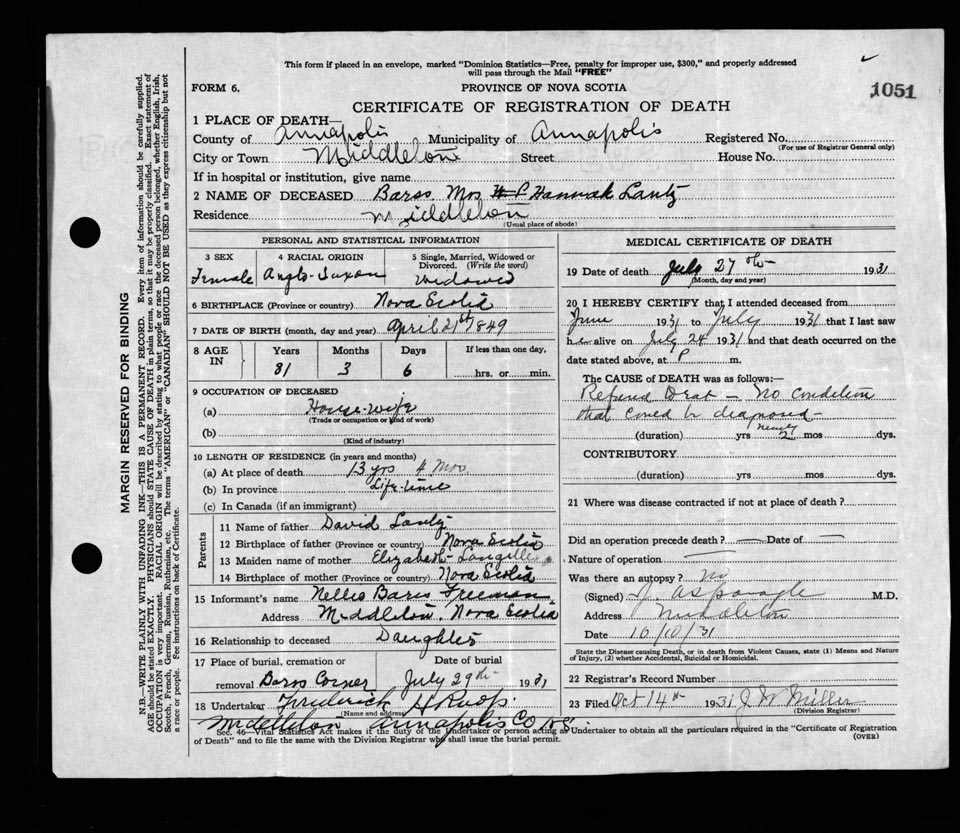 This form if placed in an envelope, marked "Dominion Statistics—Free, penalty for improper use, $300," and properly addressed
will pass through the Mail "FREE"
1051
FORM 6.
PROVINCE OF NOVA SCOTIA
CERTIFICATE OF REGISTRATION OF DEATH
1 PLACE OF DEATH—
County of Annapolis Municipality of Annapolis Registered No.
(For use of Registrar General only)
City or Town Middleton Street House No.
If in hospital or institution, give name
2 NAME OF DECEASED Barss Mrs Hannah Lantz
Residence Middleton
(Usual place of abode)
PERSONAL AND STATISTICAL INFORMATION
3 SEX 4 RACIAL ORIGIN 5 Single, Married, Widowed or
Divorced. (Write the word)
Female Anglo-Saxon Widowed
6 BIRTHPLACE (Province or country) Nova Scotia
7 DATE OF BIRTH (month, day and year) April 21st 1849
8 AGE IN Years Months Days If less than one day,
81 3 6 hrs. or min.
9 OCCUPATION OF DECEASED
(a) House-wife
(Trade or occupation or kind of work)
(b)
(Kind of industry)
10 LENGTH OF RESIDENCE (in years and months)
(a) At place of death 13 yrs 4 Mos
(b) In province Life-time
(c) In Canada (if an immigrant)
Parents
11 Name of father David Lantz
12 Birthplace of father (Province or country) Nova Scotia
13 Maiden name of mother Elizabeth Langille
14 Birthplace of mother (Province or country) Nova Scotia
15 Informant's name Nellie Barss Freeman
Address Middleton, Nova Scotia
16 Relationship to deceased Daughter
17 Place of burial, cremation or Date of burial
removal Barss Corner July 29th 1931
18 Undertaker Frederick H Roop
(Name and address)
Middleton Annapolis Co N S
MEDICAL CERTIFICATE OF DEATH
19 Date of death July 27th 1931
(Month, day and year)
20 I HEREBY CERTIFY that I attended deceased from
June 1931 to July 1931 that I last saw
her alive on July 24 1931 and that death occurred on the
date stated above, at P m.
The CAUSE of DEATH was as follows:—
Refused to eat — No condition
that could be diagnosed—
(duration) yrs nearly 2 mos dys.
CONTRIBUTORY
(duration) yrs. mos. dys.
21 Where was disease contracted if not at place of death?
Did an operation precede death? — Date of —
Nature of operation —
Was there an autopsy? No
(Signed) J. A Sponagle M.D.
Address Middleton
Date 10/10/31
State the Disease causing Death, or in death from Violent Causes, state (1) Means and Nature
of Injury, (2) whether Accidental, Suicidal or Homicidal.
22 Registrar's Record Number
23 Filed Oct 14th 1931 J W Miller
(Division Registrar)
Sec. 46—Vital Statistics Act makes it the duty of the Undertaker or person acting as Undertaker to obtain all the particulars required in the "Certificate of Registration
of Death" and to file the same with the Division Registrar who shall issue the burial permit.
(OVER)
MARGIN RESERVED FOR BINDING
N.B.—WRITE PLAINLY WITH UNFADING INK—THIS IS A PERMANENT RECORD. Every item of information should be carefully supplied.
AGE should be stated EXACTLY. PHYSICIANS should STATE CAUSE OF DEATH in plain terms, so that it may be properly classified. Exact statement of
OCCUPATION is very important. RACIAL ORIGIN will be described by stating to what people or race the deceased person belonged, whether English, Irish,
Scotch, French, German, Russian, Ruthenian, etc. The terms "AMERICAN" or "CANADIAN" SHOULD NOT BE USED as they express citizenship but not
a race or people. See instructions on back of Certificate.